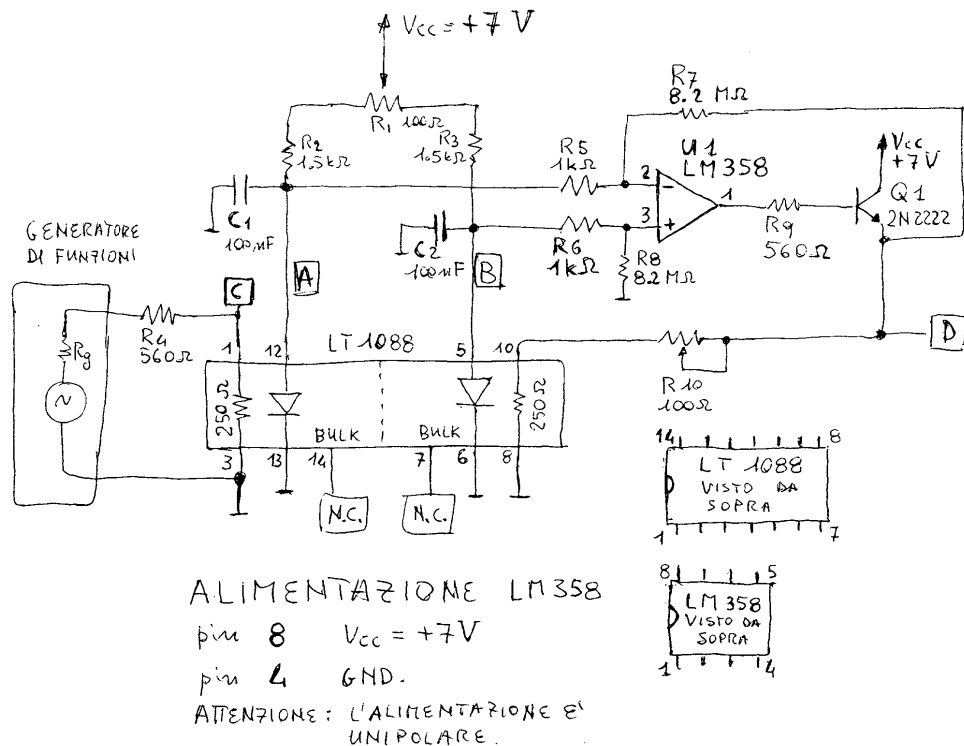 Vcc = +7 V
R1 100Ω
R2
1,5kΩ
R3
1.5kΩ
R7
8.2 MΩ
R5
1kΩ
U1
LM 358
Vcc
+7V
2
-
3
+
1
Q1
2N2222
R9
560Ω
C1
100nF
C2
100nF
R6
1kΩ
R8
8.2 MΩ
GENERATORE
DI FUNZIONI
C
A
B
D
Rg
~
R4
560Ω
1
12
LT 1088
5
10
R10
100Ω
250Ω
BULK
BULK
250Ω
3
13
14
7
6
8
N.C.
N.C.
14
8
LT 1088
VISTO DA
SOPRA
1
7
8
5
LM 358
VISTO DA
SOPRA
1
4
ALIMENTAZIONE LM 358
pin 8 Vcc = +7V
pin 4 GND.
ATTENZIONE: L'ALIMENTAZIONE E'
UNIPOLARE.